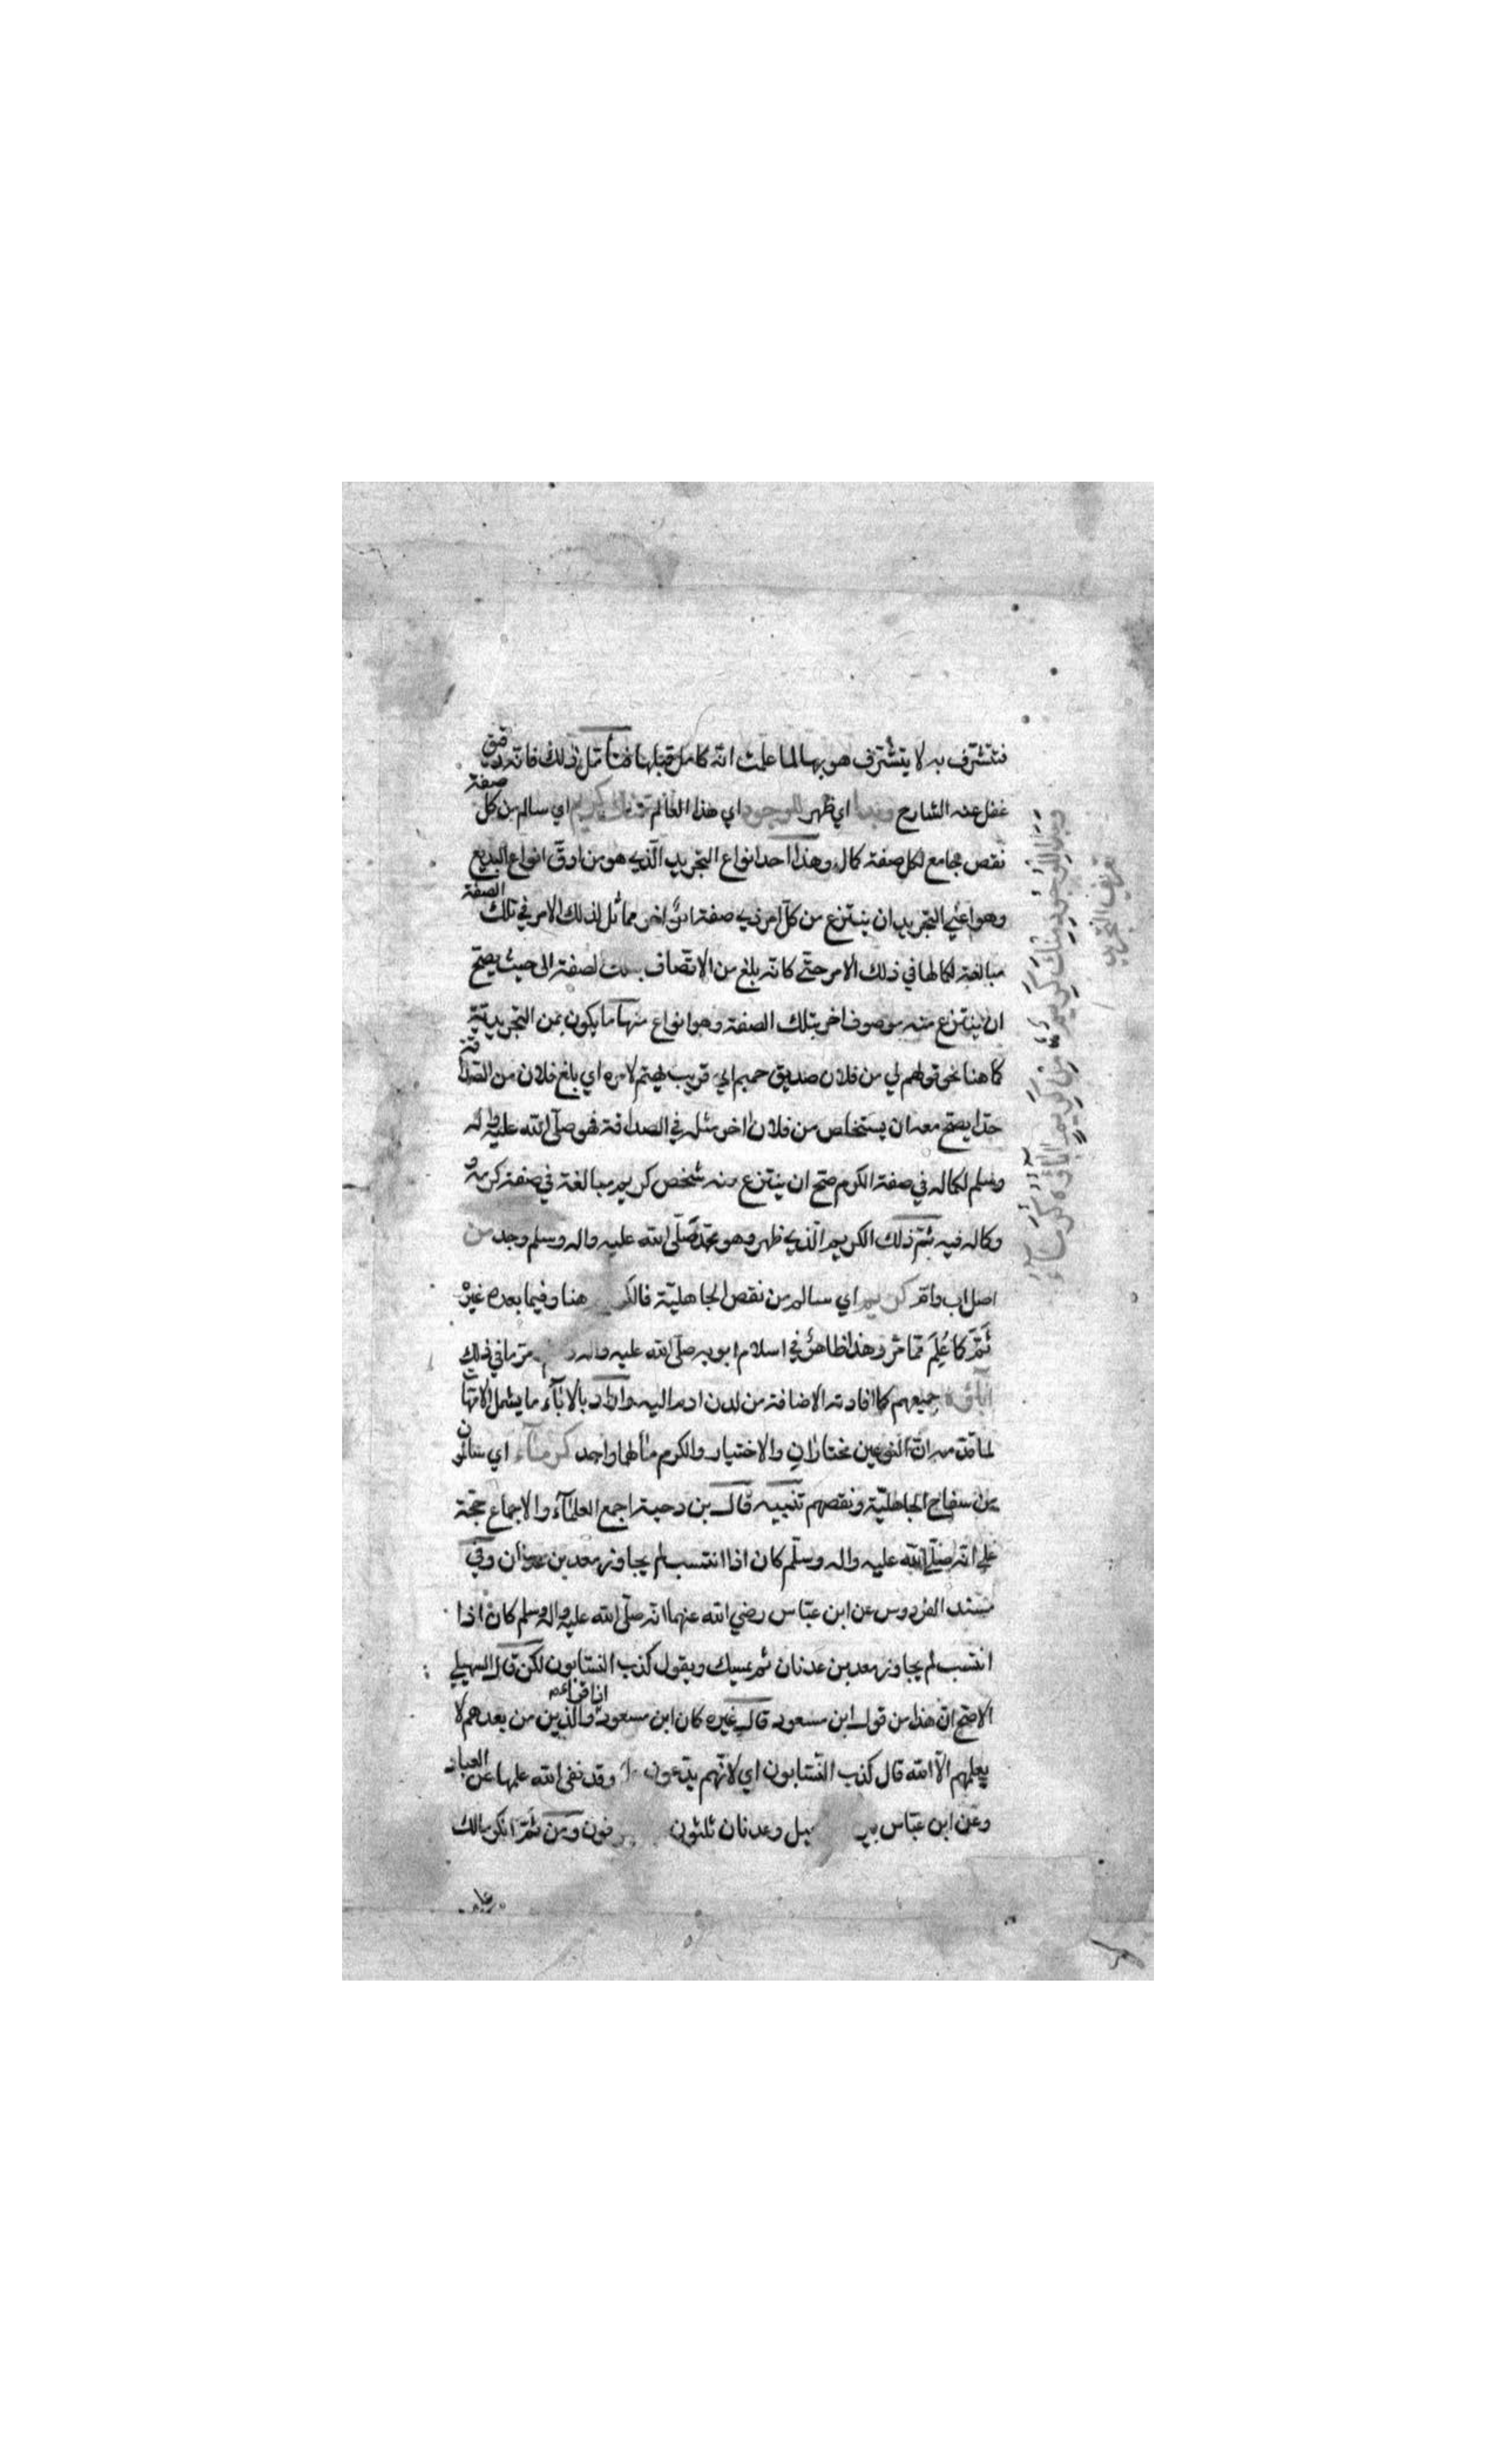 فتتشرف به لا يتشرف هو بها لما علمت انه كامل قبلها فتأمل ذلك فانه دقيق
غفل عنه الشارح وبدا اي ظهر للوجود اي هذا العالم منك كريم اي سالم من كل صفة
نقص جامع لكل صفة كمال وهذا احد انواع التجريد الذي هو من ادق انواع البديع
وهو اعني التجريد ان ينتزع من كل امر ذي صفة امر اخر مماثل لذلك الامر في تلك الصفة
مبالغة لكمالها في ذلك الامر حتى كانه بلغ من الاتصاف بتلك الصفة الى حيث يصح
ان ينتزع منه موصوف اخر بتلك الصفة وهو انواع منها ما يكون بمن التجريدية
كما هنا نحو قولهم لي من فلان صديق حميم اي قريب يهتم لامره اي بلغ فلان من الصداقة
حدا يصح معه ان يستخلص من فلان اخر مثله في الصداقة فهو صلى الله عليه واله
وسلم لكماله في صفة الكرم صح ان ينتزع منه شخص كريم مبالغة في صفة كرمه و
وكماله فيه ثم ذلك الكريم الذي ظهر وهو محمد صلى الله عليه واله وسلم وجد من
اصل اب وام كريم اي سالم من نقص الجاهلية فالكريم هنا وفيما بعده غيره
ثم كما علم مما مر وهذا ظاهر في اسلام ابويه صلى الله عليه واله وسلم ومر ما في ذلك
اباؤه جميعهم كما افادته الاضافة من لدن ادم اليه واراد بالاباء ما يشمل الامهات
لما قدمه ان النوعين مختاران والاختيار والكرم مألهما واحد كرماء اي سالمون
من سفاح الجاهلية ونقصهم تنبيه قال بن دحية اجمع العلماء والاجماع حجة
على انه صلى الله عليه واله وسلم كان اذا انتسب لم يجاوز معد بن عدنان وفي
مسند الفردوس عن ابن عباس رضي الله عنهما انه صلى الله عليه واله وسلم كان اذا
انتسب لم يجاوز معد بن عدنان ثم يمسك ويقول كذب النسابون لكن قال السهيلي
الاصح ان هذا من قول ابن مسعود قال غيره كان ابن مسعود اذا قرأ والذين من بعدهم لا
يعلمهم الا الله قال كذب النسابون اي لانهم يدعون وقد نفى الله علمها عن العباد
وعن ابن عباس بين وعدنان ثلثون ومن ثم انكر مالك
وبدا للوجود منك كريم من كريم اباؤه كرماء
تعريف التجريد